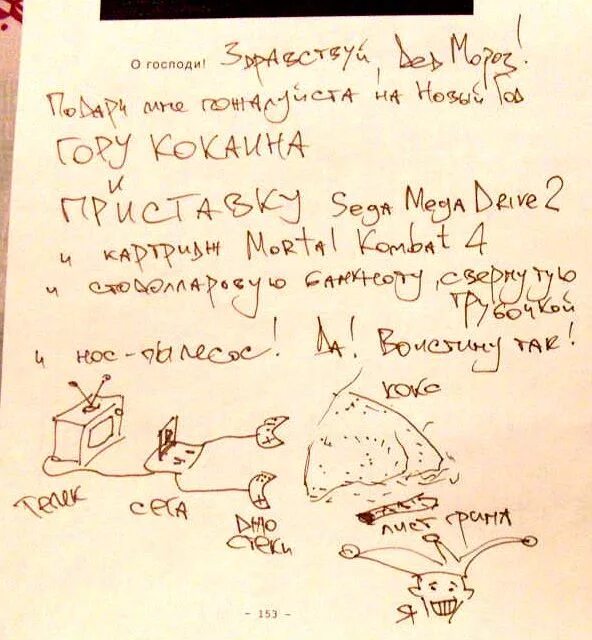 О господи! Здравствуй, Дед Мороз!
Подари мне пожалуйста на Новый Год
ГОРУ КОКАИНА
и
ПРИСТАВКУ Sega Mega Drive 2
и картридж Mortal Kombat 4
и стодолларовую банкноту, свернутую
трубочкой
и нос-пылесос! Да! Воистину так!
кокс
телек
сега
джо
стеки
лист грина
я
- 153 -